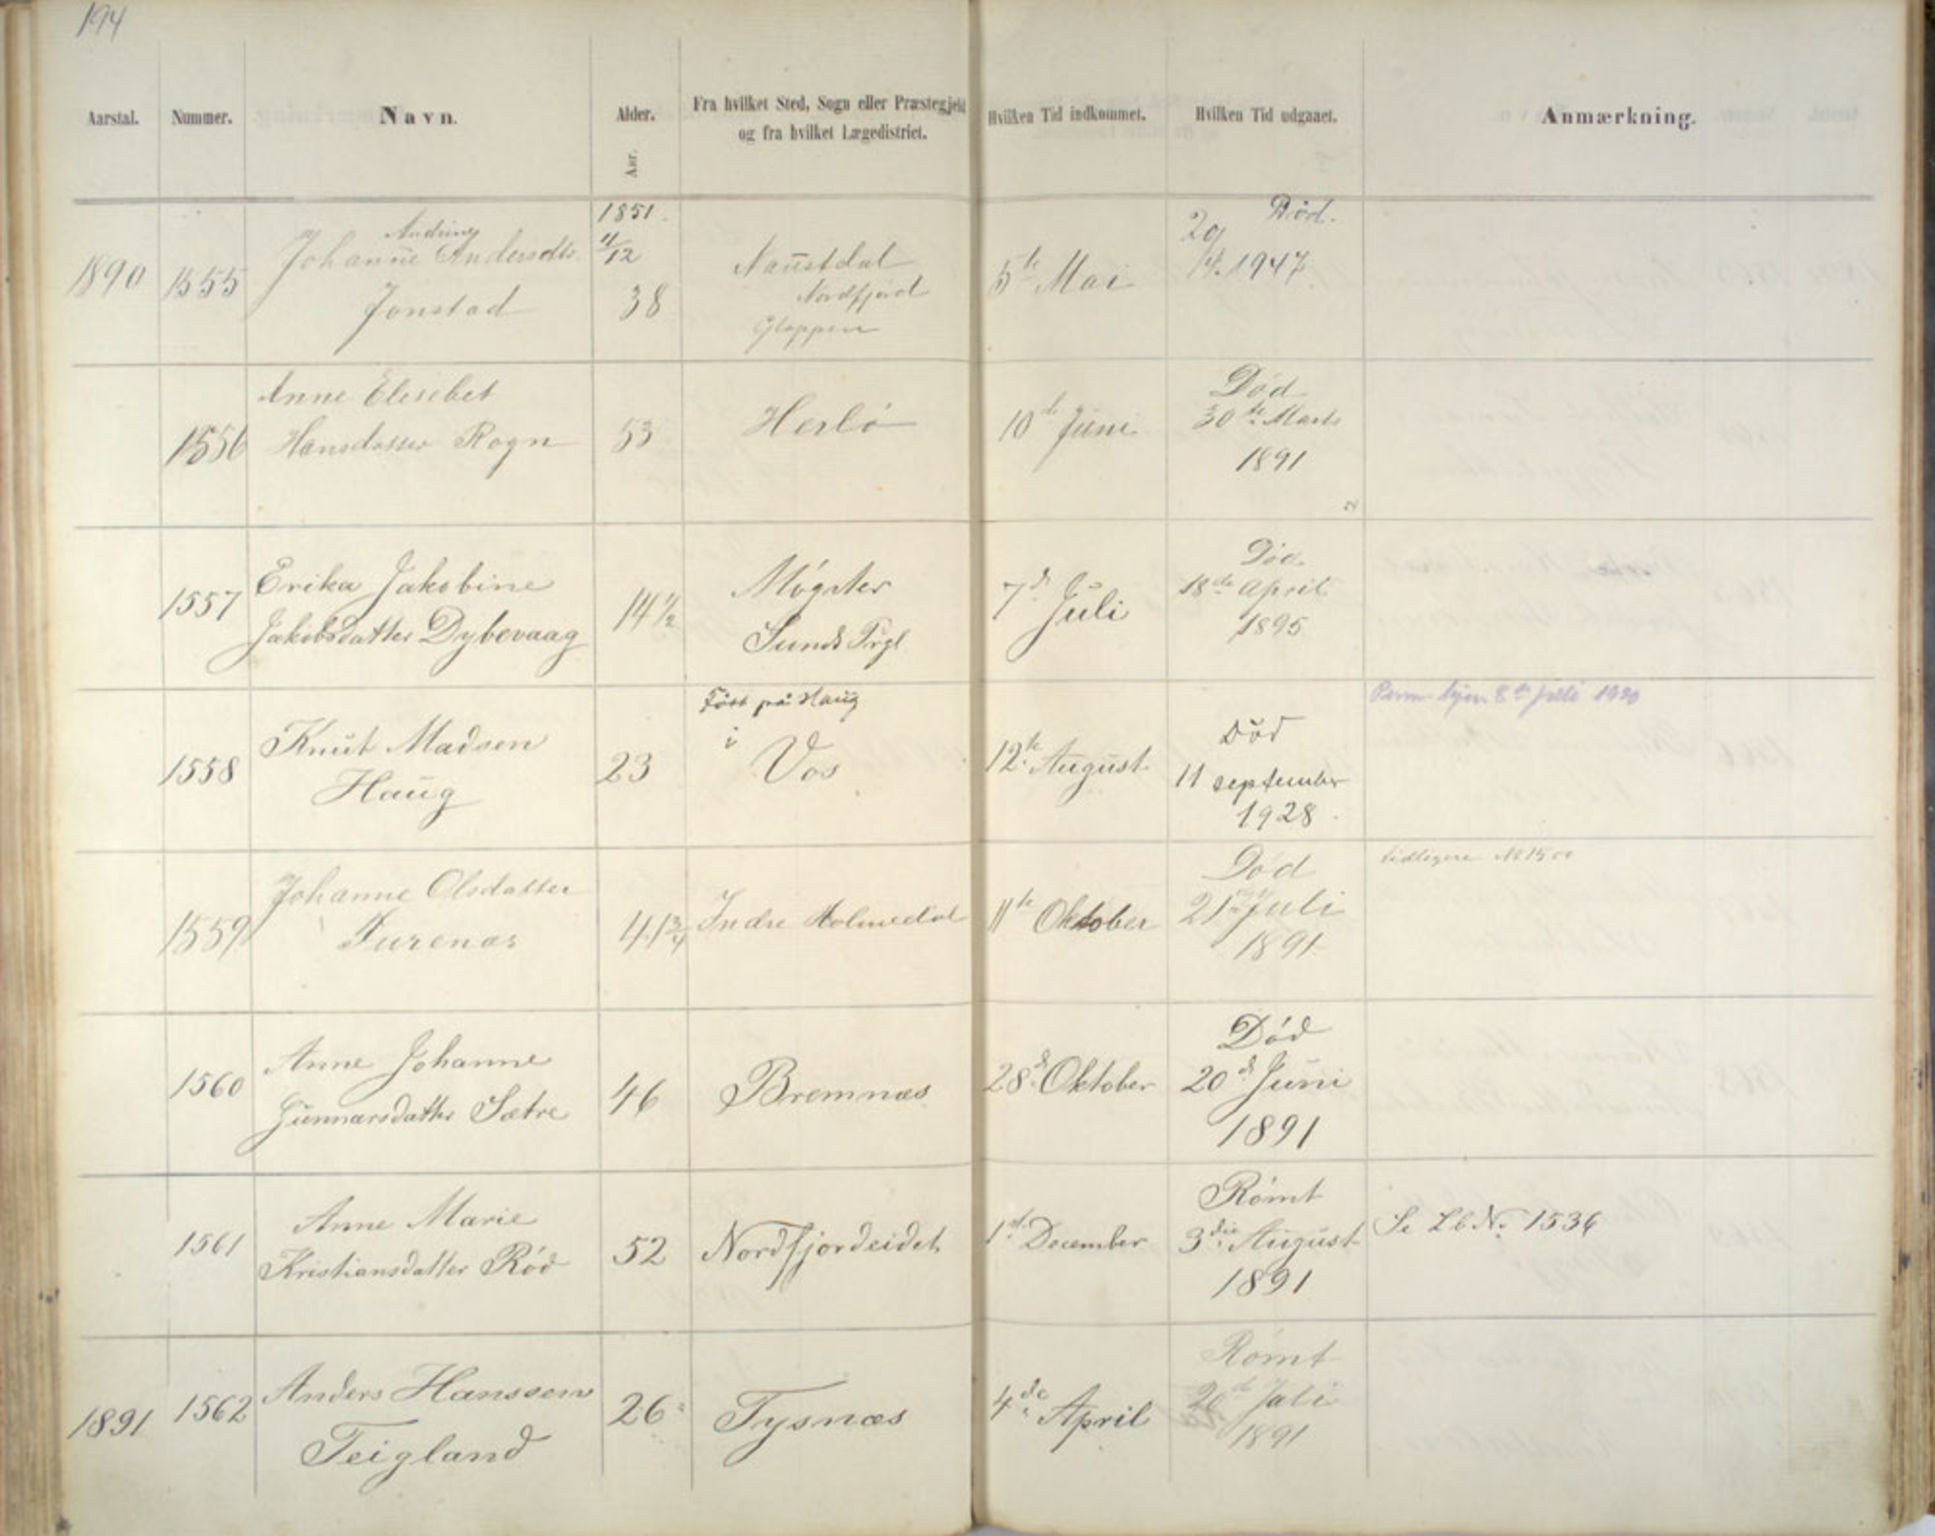 194
Aarstal. Nummer. Navn. Alder. Fra hvilket Sted, Sogn eller Præstegjeld Hvilken Tid indkommet. Hvilken Tid udgaaet. Anmærkning.
og fra hvilket Lægedistrict.
Aar.
1851. Død.
Andrine 4/12 29/4. 1947
1890 1555 Johanne Andersdtr. Naustdal 5te Mai
Jonstad 38 Nordfjord
Gloppen
Anne Elesebet Død
1556 Hansdotter Rogn 53 Herlö 10de Juni 30te Marts
1891
Erika Jakobine Møgster Død
1557 Jakobsdatter Dybevaag 14 1/2 Sunds Prgl 7de Juli 18de April
1895
Født på Haug 8de juli 1920
i
Knut Madsen Død
1558 Haug 23 Vos 12te August 11 september
1928.
Johanne Olsdatter Død tidligere No 1500
1559 Furenæs 41 3/4 Indre Holmedal 11te Oktober 21de Juli
1891
Anne Johanne Død
1560 Gunnarsdatter Sætre 46 Bremnæs 28de Oktober 20de Juni
1891
Anne Marie Rømt
1561 Kristiansdatter Rød 52 Nordfjordeidet 1ste December 3die August Se LbNo. 1536
1891
Anders Hanssen Rømt
1891 1562 Teigland 26 Tysnæs 4de April 20de Juli
1891